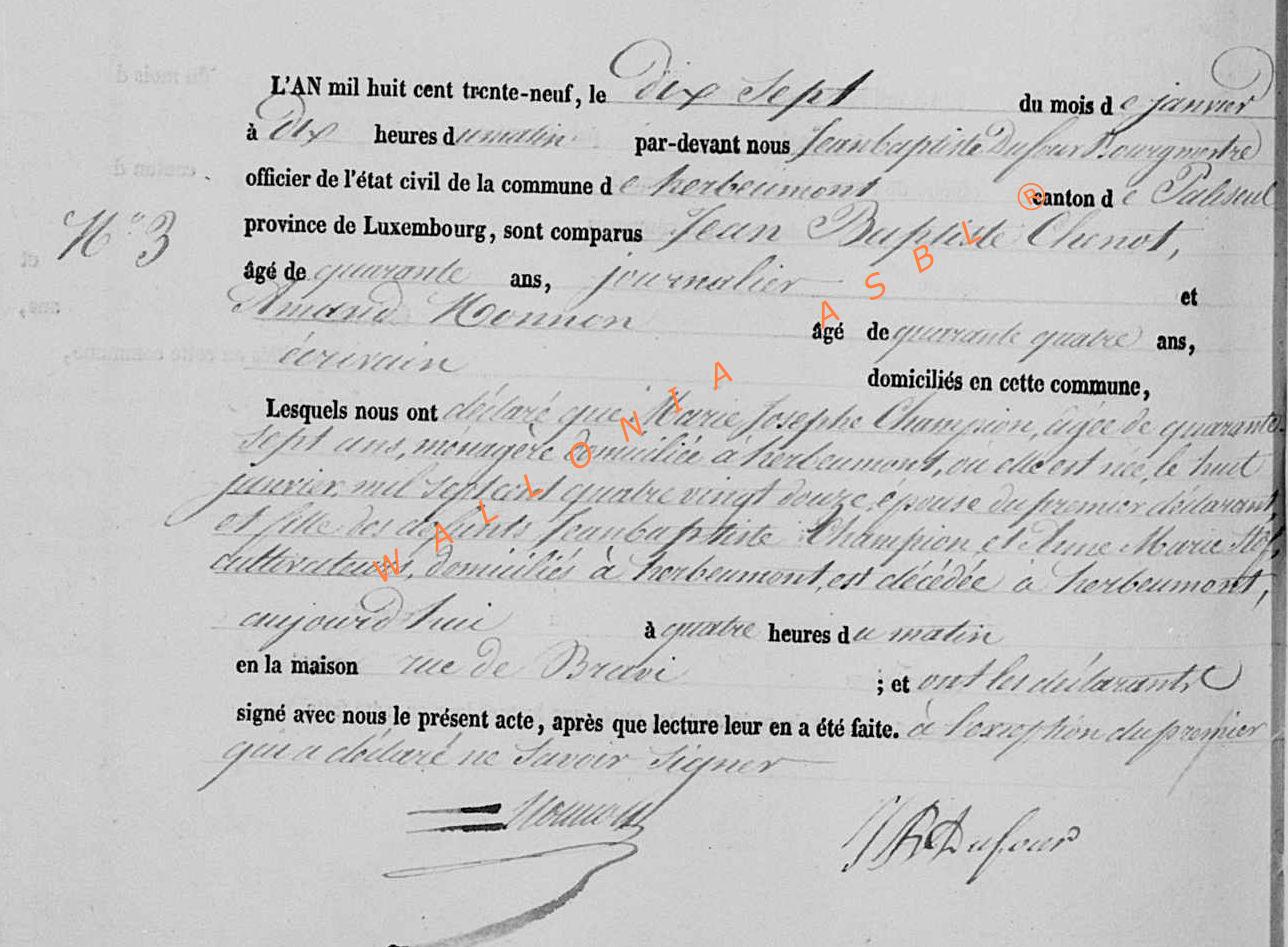 L'AN mil huit cent trente-neuf, le dix sept du mois de janvier
à dix heures du matin par-devant nous Jeanbaptiste Dufour Bourgmestre
officier de l'état civil de la commune de herbeumont canton de Paliseul
N° 3 province de Luxembourg, sont comparus Jean Baptiste Chenot,
âgé de quarante ans, journalier et
Amand Monnon âgé de quarante quatre ans,
écrivain
domiciliés en cette commune,
Lesquels nous ont déclaré que Marie Josephe Champion, âgée de quarante
sept ans, ménagère domiciliée à herbeumont, où elle est née, le huit
janvier mil sept cent quatre vingt douze, épouse du premier déclarant
et fille des défunts Jeanbaptiste Champion et Anne Marie
cultivateurs, domiciliés à herbeumont, est décédée à herbeumont,
aujourd'hui à quatre heures du matin
en la maison rue de Bravi ; et ont les déclarants
signé avec nous le présent acte, après que lecture leur en a été faite. à l'exception du premier
qui a déclaré ne savoir signer
Monnon JB Dufour
WALLONIA ASBL ®